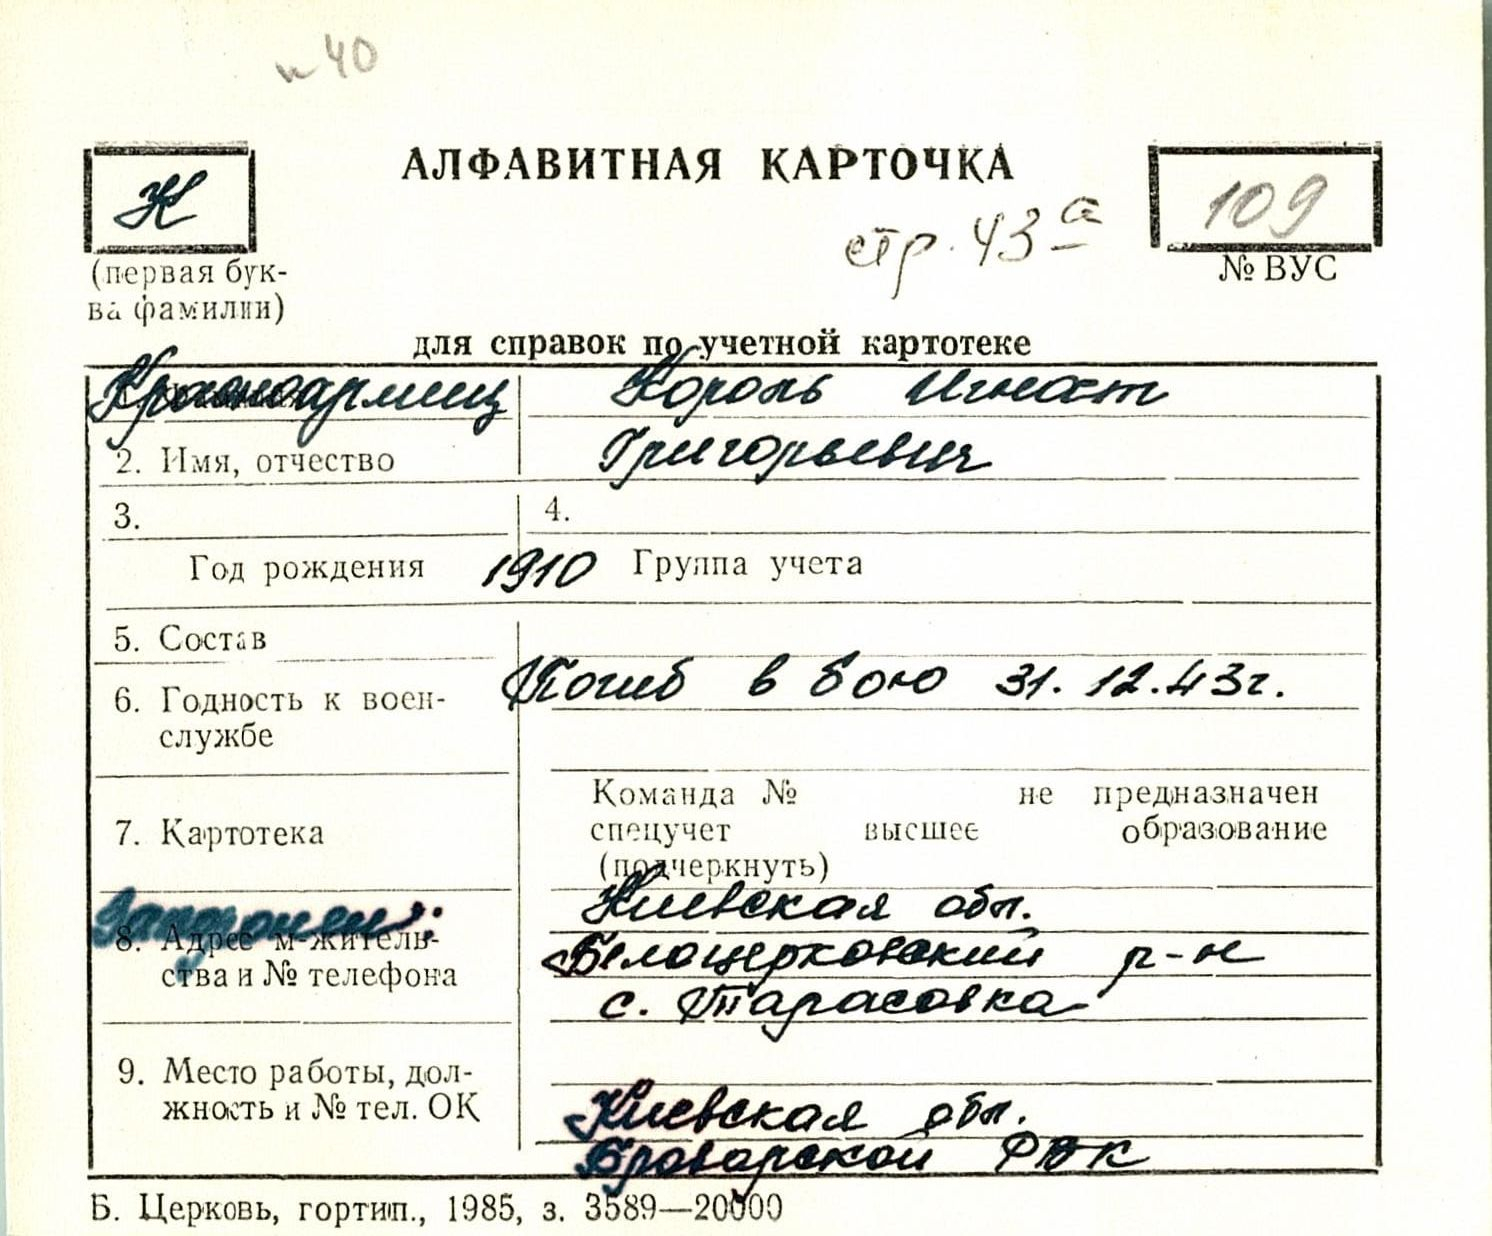 п 40
АЛФАВИТНАЯ КАРТОЧКА
К
109
стр. 43 а
(первая бук-
ва фамилии)
№ ВУС
для справок по учетной картотеке
Красноармеец Король Игнат
2. Имя, отчество Григорьевич
3. 4.
Год рождения 1910 Группа учета
5. Состав
Погиб в бою 31.12.43г.
6. Годность к воен-
службе
Команда № не предназначен
спецучет высшее образование
(подчеркнуть)
7. Картотека
Захоронен: Киевская обл.
8. Адрес м-житель- Белоцерковский р-н
ства и № телефона
с. Тарасовка
9. Место работы, дол-
жность и № тел. ОК
Киевская обл.
Броварской РВК
Б. Церковь, гортип., 1985, з. 3589—20000